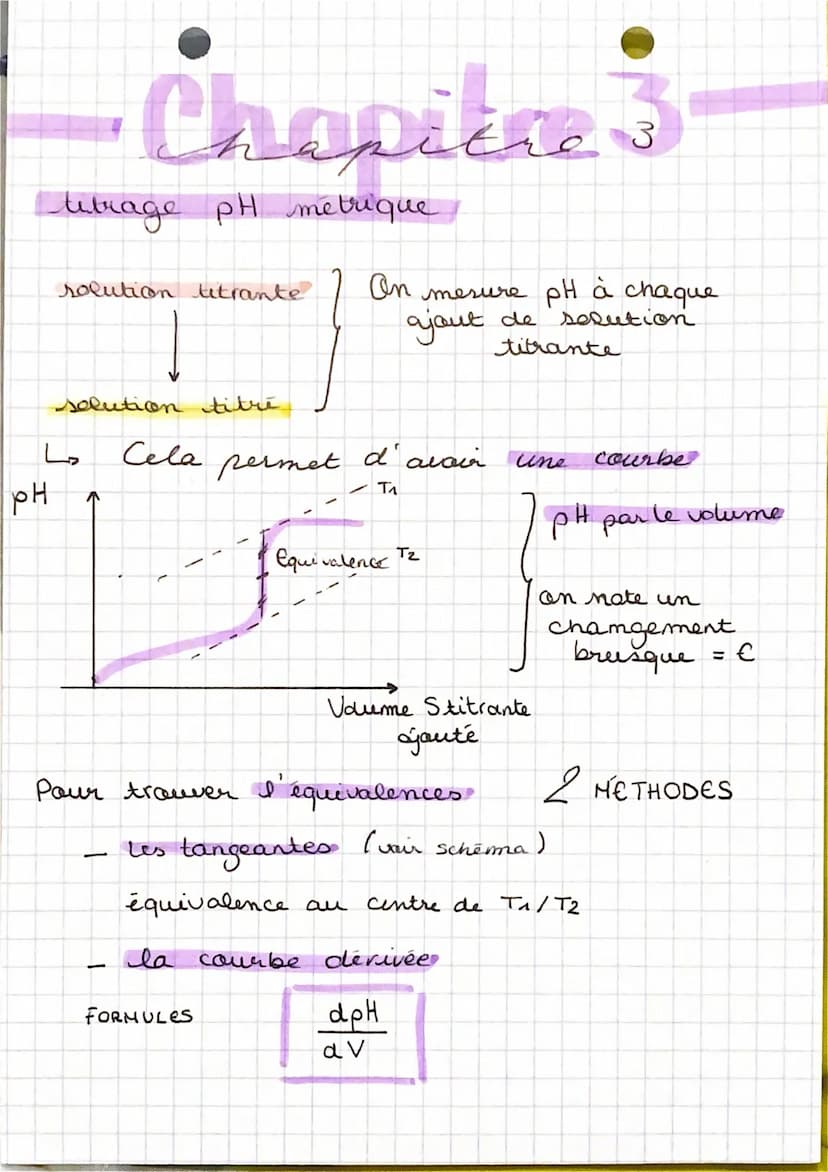 Chapitre 3
chapitre 3
titrage pH métrique
solution titrante
On mesure pH à chaque
ajout de solution
titrante
solution titré
↳ Cela permet d'avoir une courbe
pH
T1
pH par le volume
Equivalence T2
on note un
changement
brusque = €
Volume Stitrante
ajouté
Pour trouver l'équivalences 2 MÉTHODES
- les tangeantes (voir schéma)
équivalence au centre de T1/T2
- la courbe dérivée
FORMULES
dpH
dV